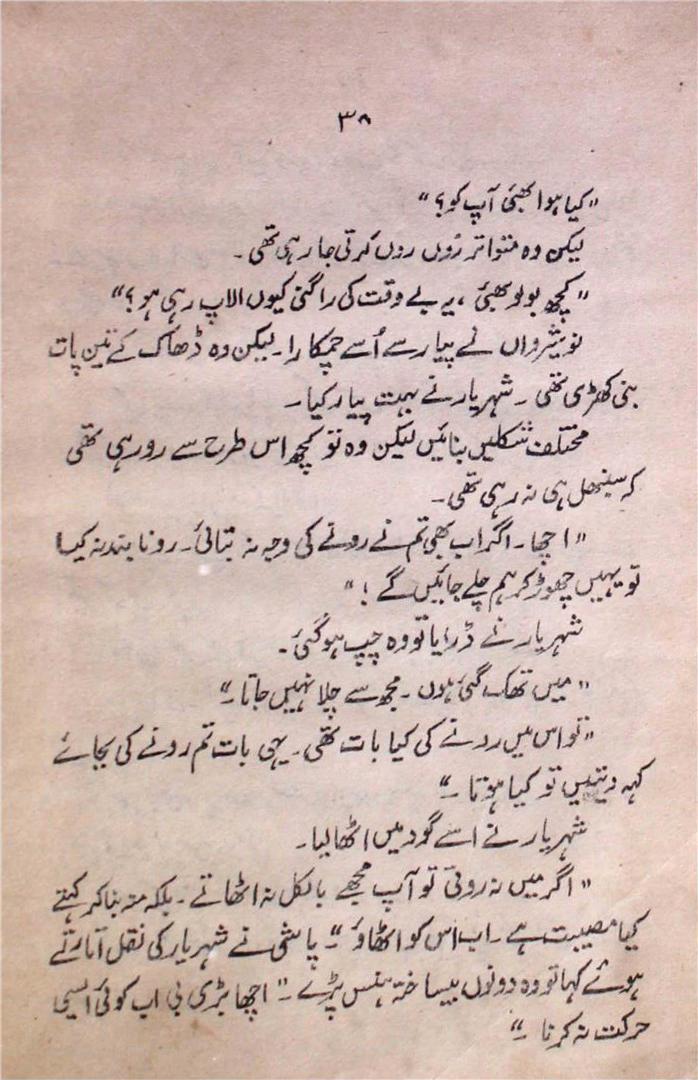 ۳۸
"کیا ہوا بھئی آپ کو؟"
لیکن وہ متواتر رُوں روں کرتی جا رہی تھی ۔
"کچھ بولو بھئی ، یہ بے وقت کی راگنی کیوں الاپ رہی ہو؟"
نوشیرواں نے پیار سے اُسے چمکارا ۔ لیکن وہ ڈھاک کے تین پات
بنی کھڑی تھی ۔ شہریار نے بہت پیار کیا ۔
مختلف شکلیں بنائیں لیکن وہ تو کچھ اس طرح سے رو رہی تھی
کہ سنبھل ہی نہ رہی تھی ۔
"اچھا ۔ اگر اب بھی تم نے رونے کی وجہ نہ بتائی ۔ رونا بند نہ کیا
تو یہیں چھوڑ کر ہم چلے جائیں گے !"
شہریار نے ڈرایا تو وہ چپ ہو گئی ۔
"میں تھک گئی ہوں ۔ مجھ سے چلا نہیں جاتا ۔"
"تو اس میں رونے کی کیا بات تھی ۔ یہی بات تم رونے کی بجائے
کہہ دیتیں تو کیا ہوتا ۔"
شہریار نے اسے گود میں اٹھا لیا ۔
"اگر میں نہ روتی تو آپ مجھے بالکل نہ اٹھاتے ۔ بلکہ منہ بنا کر کہتے
کیا مصیبت ہے ۔ اب اس کو اٹھاؤ ۔" پاشی نے شہریار کی نقل اتارتے
ہوئے کہا تو وہ دونوں بیساختہ ہنس پڑے ۔ "اچھا بڑی بی اب کوئی ایسی
حرکت نہ کرنا ۔"